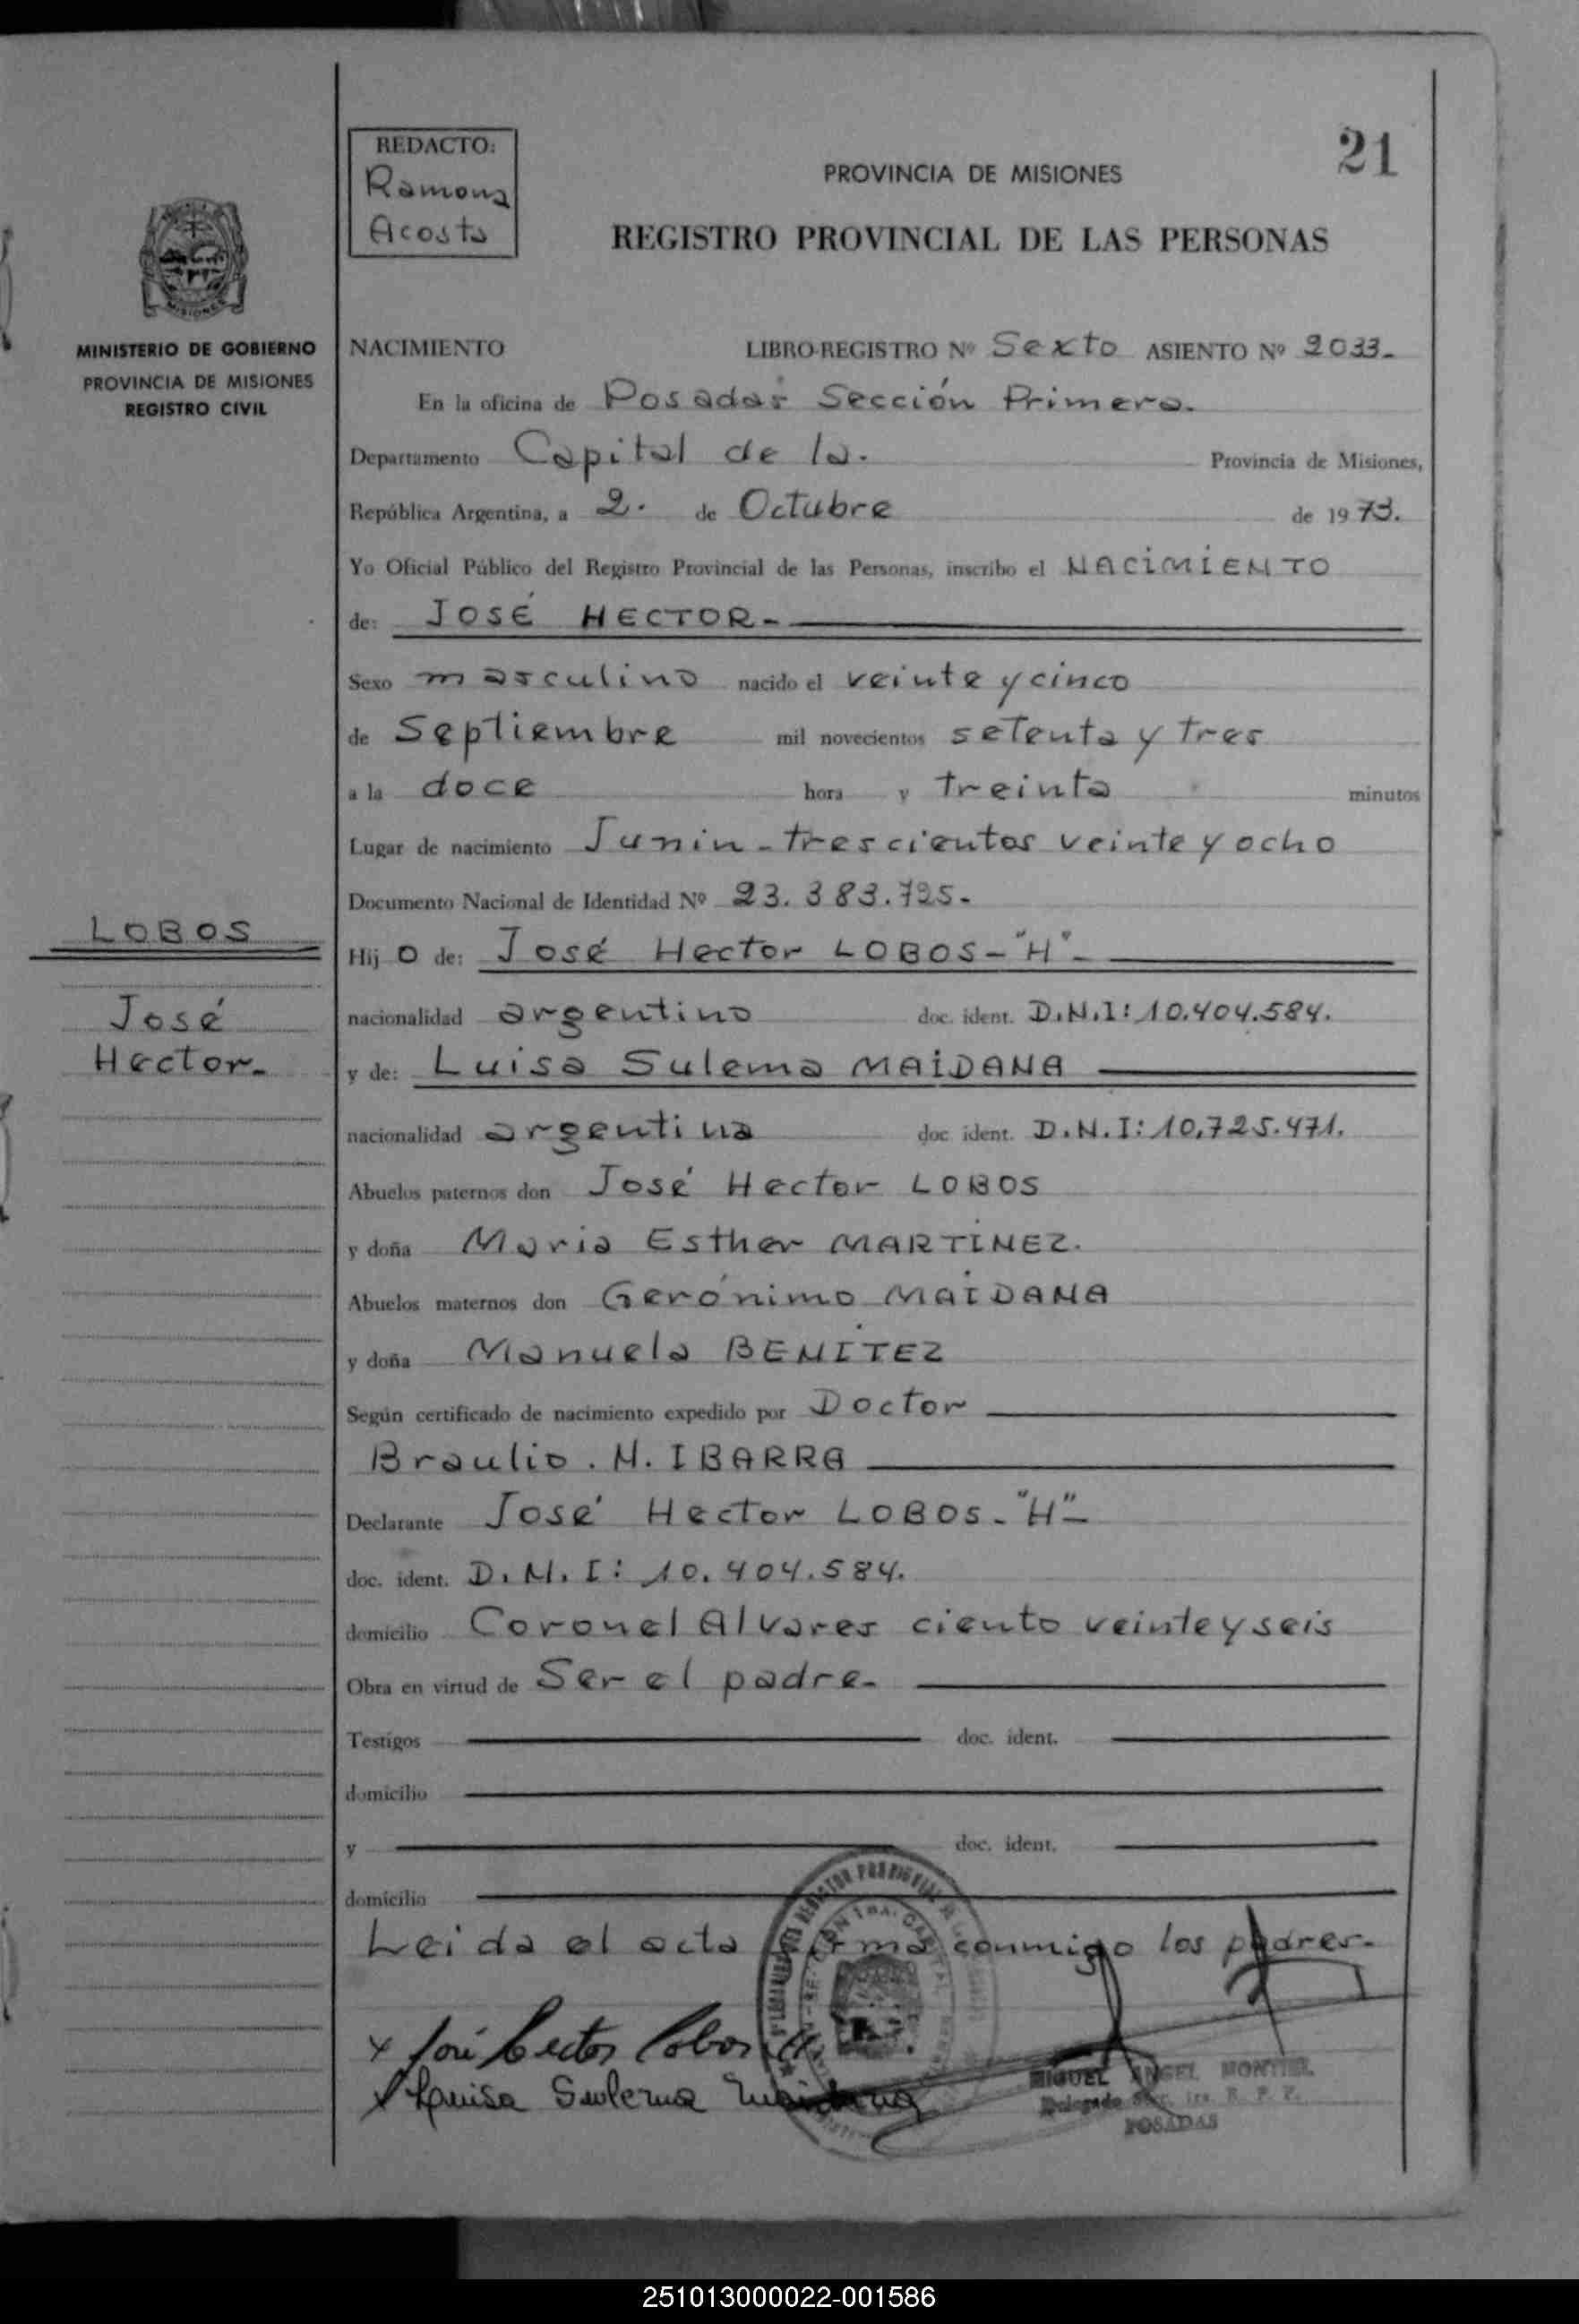 21
REDACTO:
Ramona
Acosta
PROVINCIA DE MISIONES
REGISTRO PROVINCIAL DE LAS PERSONAS
MISIONES
MINISTERIO DE GOBIERNO
PROVINCIA DE MISIONES
REGISTRO CIVIL
NACIMIENTO LIBRO-REGISTRO Nº Sexto ASIENTO Nº 2033.
En la oficina de Posadas Sección Primera.
Departamento Capital de la. Provincia de Misiones,
República Argentina, a 2. de Octubre de 1973.
Yo Oficial Público del Registro Provincial de las Personas, inscribo el NACIMIENTO
de: JOSÉ HECTOR-
Sexo masculino nacido el veinte y cinco
de Septiembre mil novecientos setenta y tres
a la doce hora y treinta minutos
Lugar de nacimiento Junin-trescientos veinte y ocho
Documento Nacional de Identidad Nº 23.383.725.
LOBOS
José
Hector.
Hijo de: José Hector LOBOS-"H"-
nacionalidad argentino doc. ident. D.N.I: 10.404.584.
y de: Luisa Sulema MAIDANA
nacionalidad argentina doc ident. D.N.I: 10.725.471.
Abuelos paternos don José Hector LOBOS
y doña Maria Esther MARTINEZ.
Abuelos maternos don Gerónimo MAIDANA
y doña Manuela BENITEZ
Según certificado de nacimiento expedido por Doctor
Braulio. N. IBARRA
Declarante José Hector LOBOS-"H"-
doc. ident. D.N.I: 10.404.584.
domicilio Coronel Alvares ciento veinte y seis
Obra en virtud de Ser el padre-
Testigos doc. ident.
domicilio
y doc. ident.
domicilio
Leida el acta firma conmigo los padres.
x José Hector Lobos H.
x Luisa Sulema Maidana
MIGUEL ANGEL MONTIEL
Delegado Sec. 1ra. R. P. P.
POSADAS
251013000022-001586